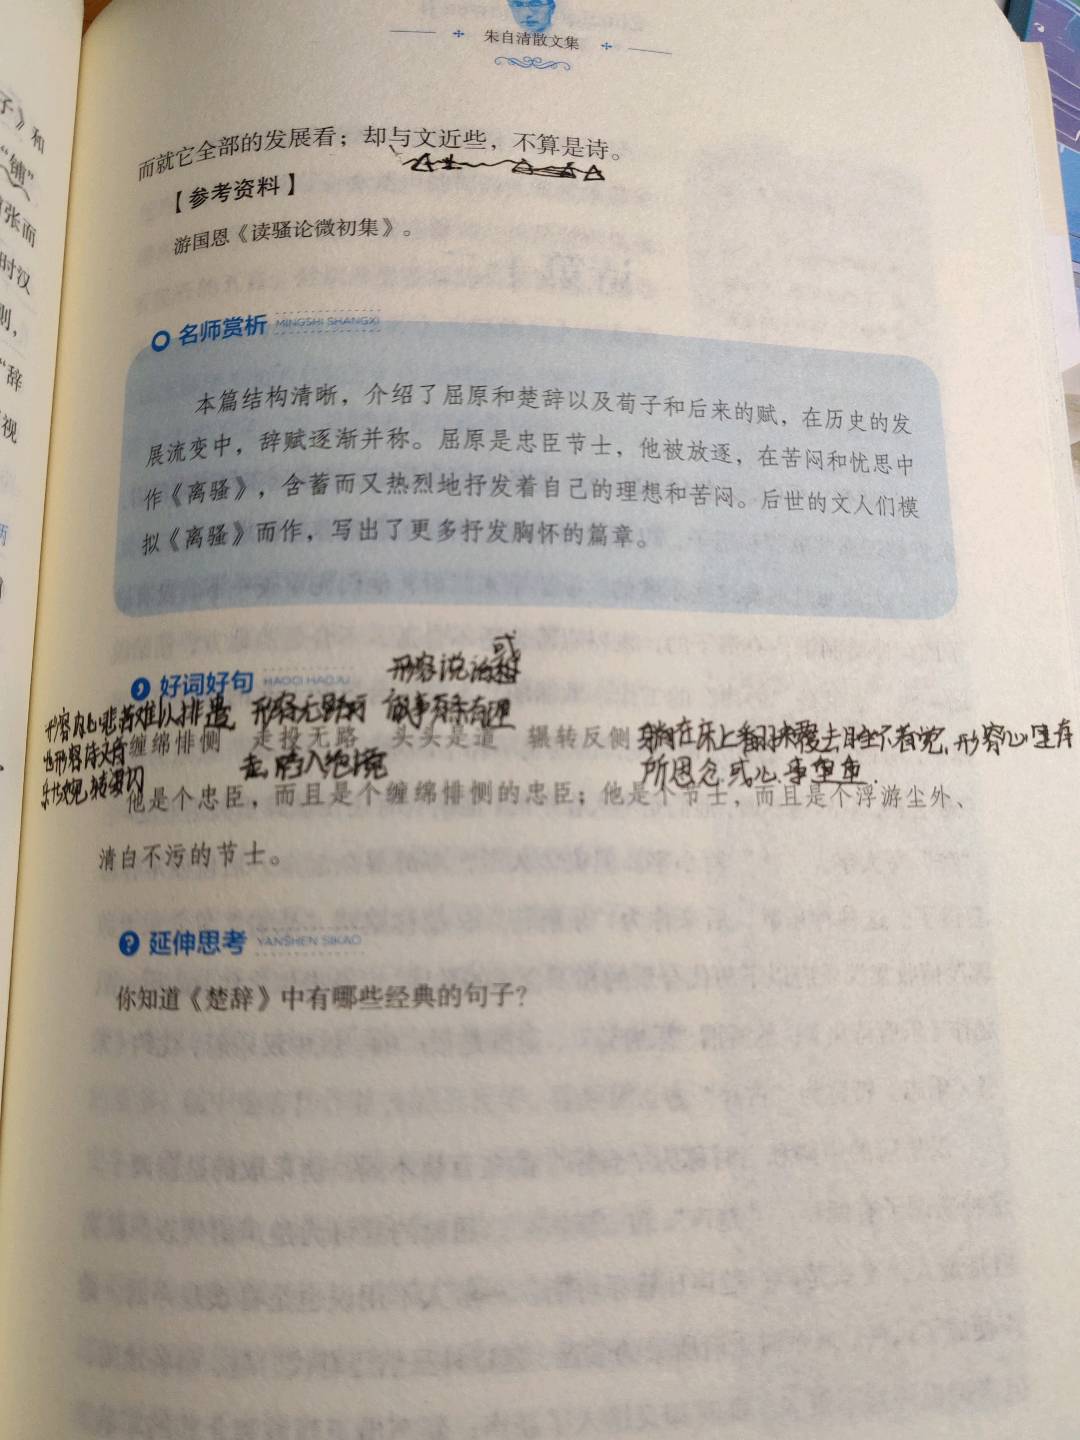 朱自清散文集
子》和
“铺”
张而
时汉
则，
“辞
视
而就它全部的发展看；却与文近些，不算是诗。
【参考资料】
游国恩《读骚论微初集》。
名师赏析 MINGSHI SHANGXI
本篇结构清晰，介绍了屈原和楚辞以及荀子和后来的赋，在历史的发
展流变中，辞赋逐渐并称。屈原是忠臣节士，他被放逐，在苦闷和忧思中
作《离骚》，含蓄而又热烈地抒发着自己的理想和苦闷。后世的文人们模
拟《离骚》而作，写出了更多抒发胸怀的篇章。
好词好句 HAOCI HAOJU
形容说话或
做事有条有理
形容内心悲苦难以排遣
也形容诗文
婉转
形容无路可
走，陷入绝境
缠绵悱恻 走投无路 头头是道 辗转反侧
躺在床上翻来覆去睡不着觉，形容心里有
所思念或心事重重.
他是个忠臣，而且是个缠绵悱恻的忠臣；他是个节士，而且是个浮游尘外、
清白不污的节士。
延伸思考 YANSHEN SIKAO
你知道《楚辞》中有哪些经典的句子？